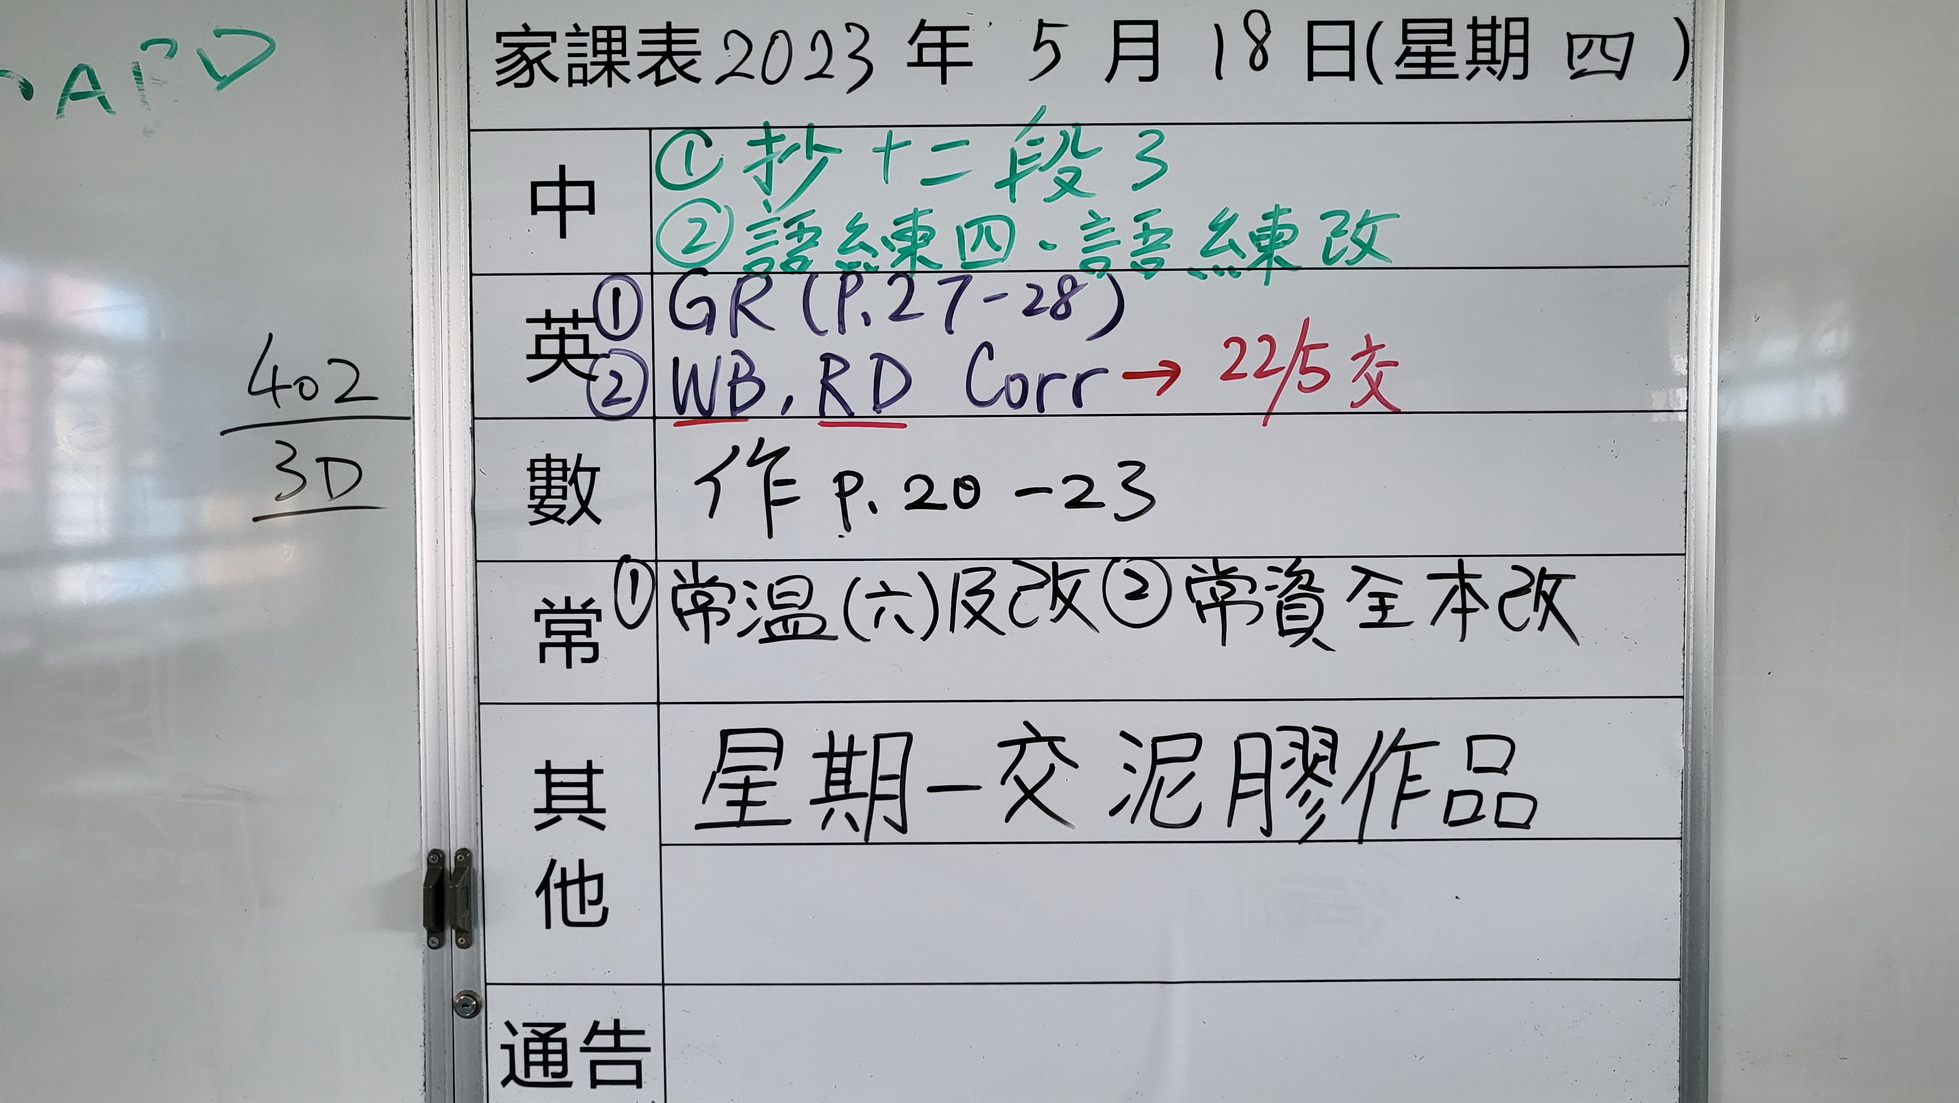 402
3D
家課表2023年5月18日(星期四)
中
①抄十二段3
②語練四、語練改
英
①GR (P.27-28)
②WB, RD Corr → 22/5交
數
作 p.20-23
常
①常温(六)及改②常資全本改
其他
星期一交泥膠作品
通告